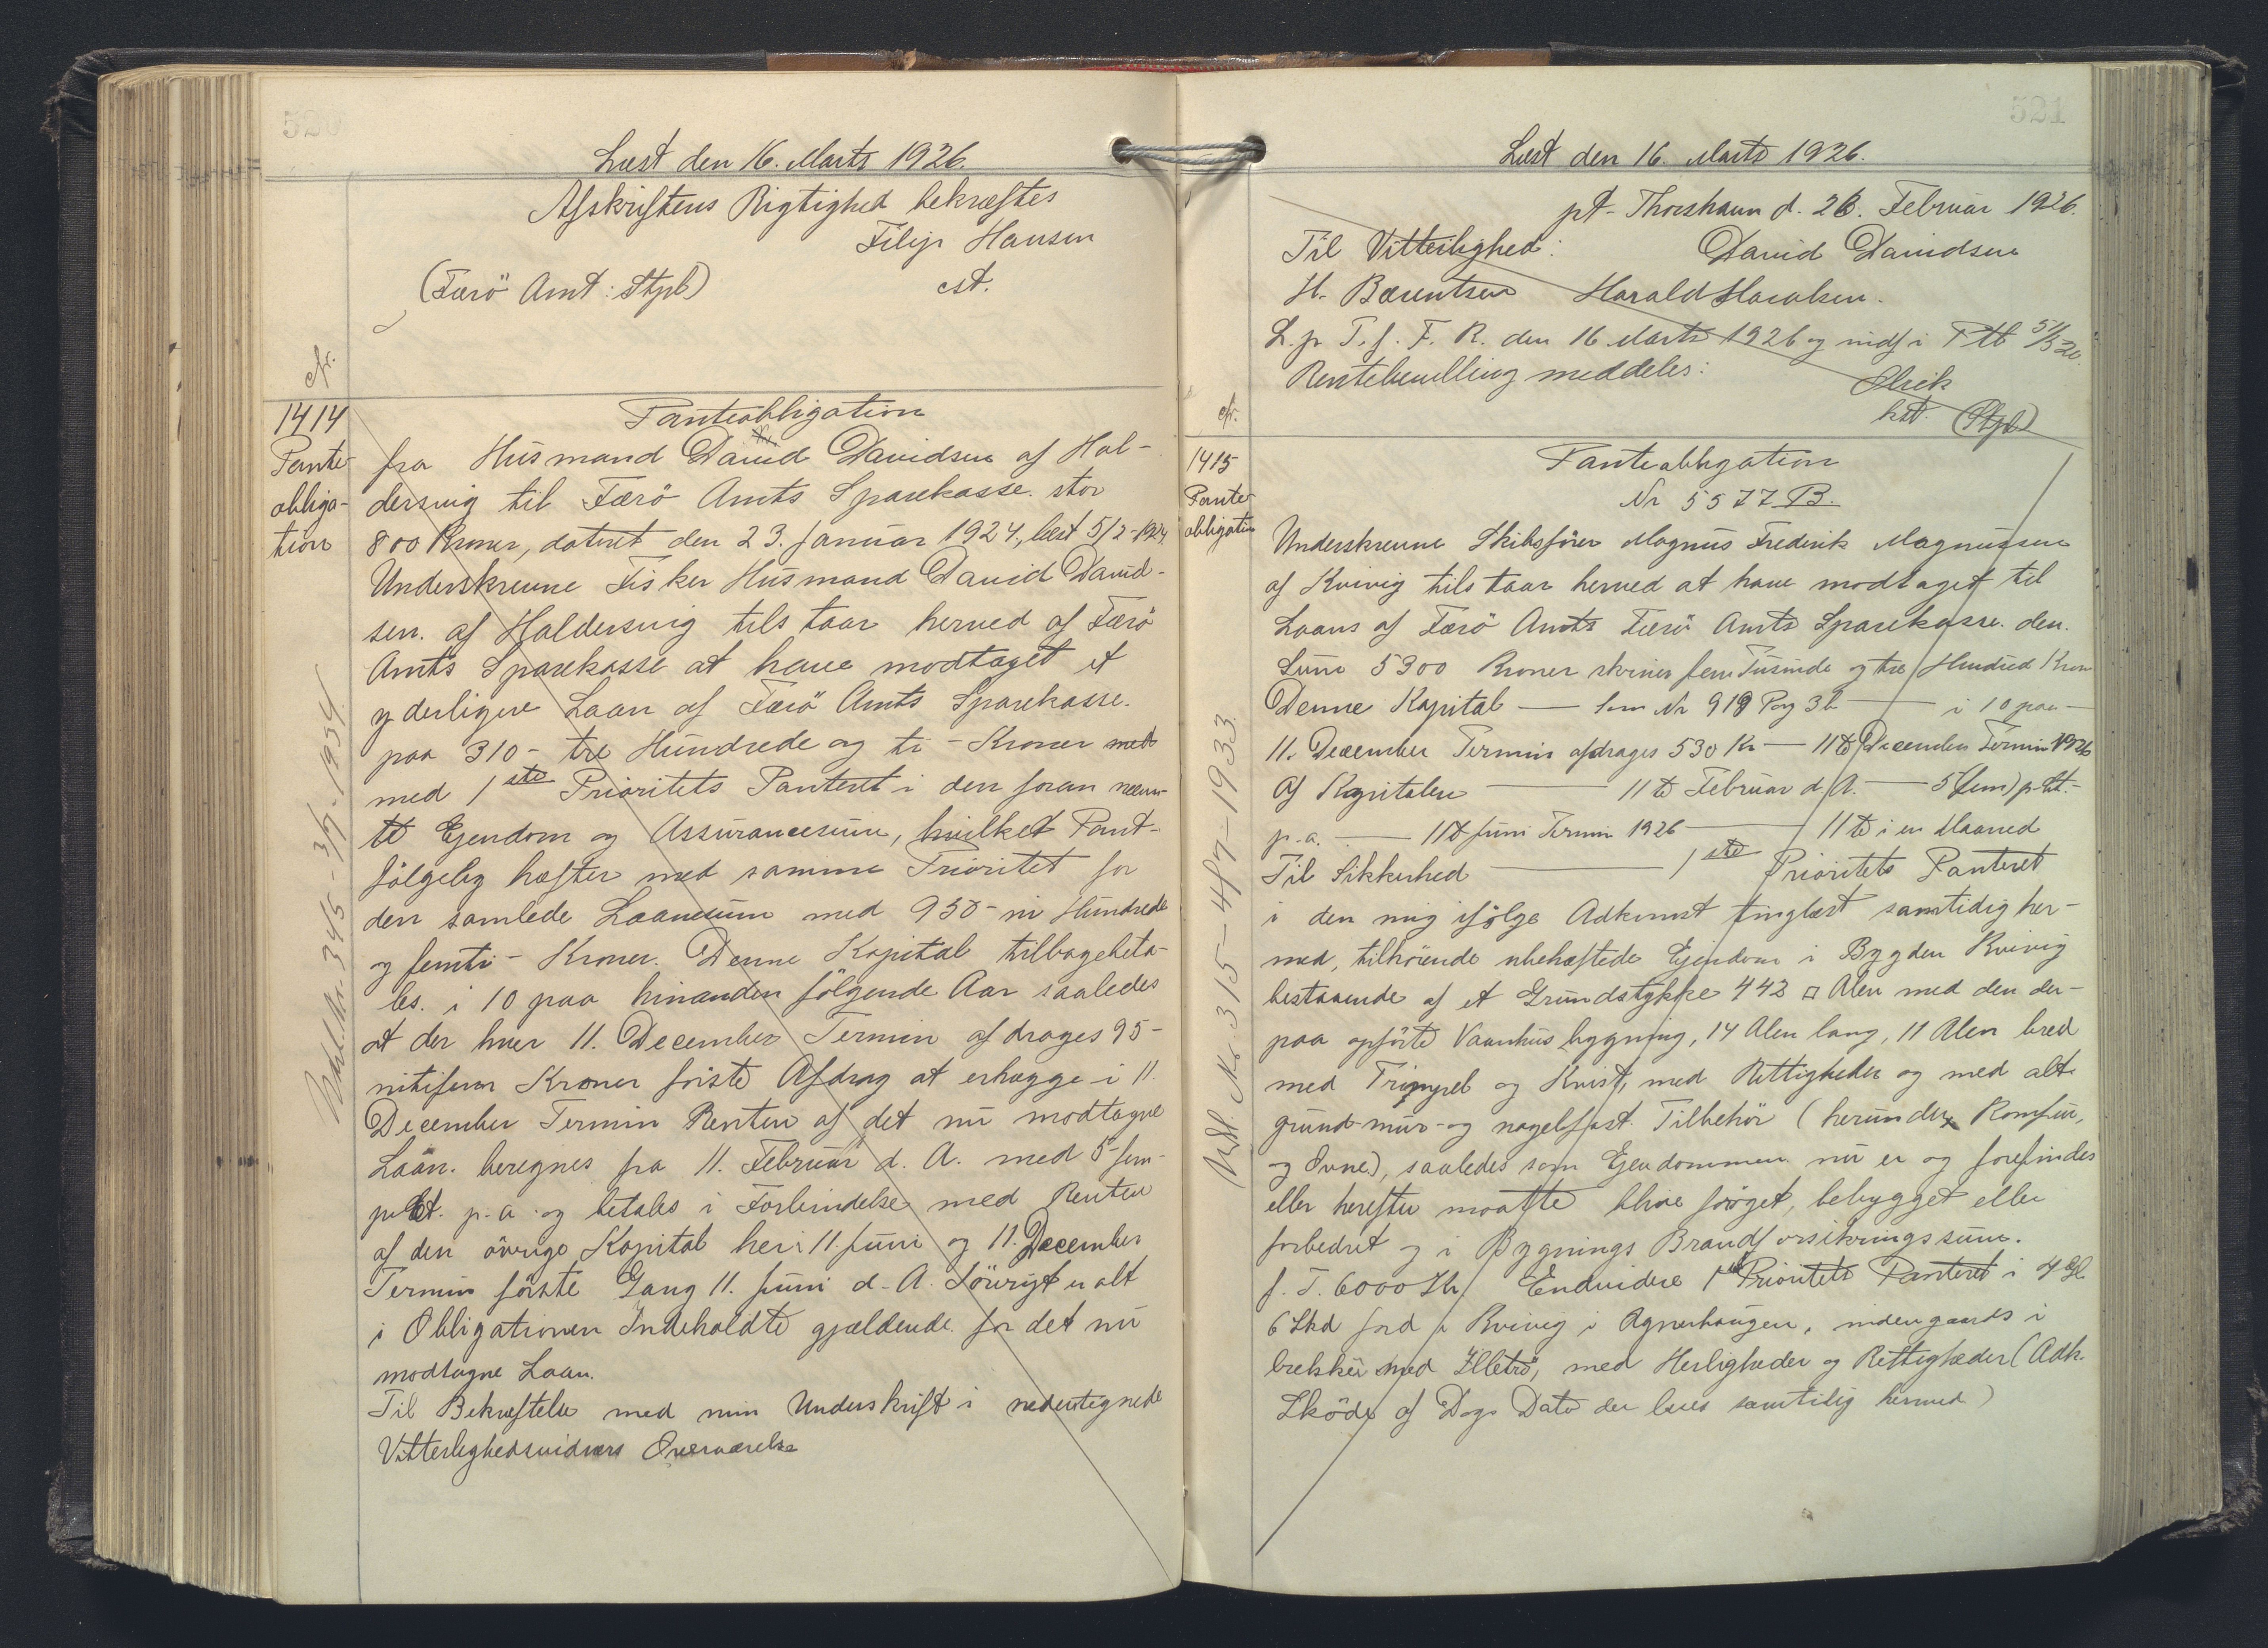 520
Læst den 16. Marts 1926.
Afskriftens Rigtighed bekræftes
Filip Hansen
cst.
(Færö Amt: Stpl)
cfr.
1414
Pante-
obliga-
tion
Panteobligation
fra Husmand David Davidsen af Hal-
dersvig til Færö Amts Sparekasse. stor
800 Kroner, dateret den 23. Januar 1924, læst 5/2-1924.
Underskrevne Fisker Husmand David David-
sen. af Haldersvig tilstaar herved af Færö
Amts Sparekasse at have modtaget et
yderligere Laan af Færö Amts Sparekasse.
paa 310 - tre Hundrede og ti - Kroner med
med 1ste Prioritets Panteret i den foran nævn-
te Ejendom og Assurancesum, hvilket Pant-
fölgelig hæfter med samme Prioritet for
den samlede Laanesum med 950 - ni Hundrede
og femti - Kroner. Denne Kapital tilbagebeta-
les. i 10 paa hinanden fölgende Aar saaledes
at der hver 11. December Termin afdrages 95 -
nitifem Kroner förste Afdrag at erlægge i 11.
December Termin Renten af det nu modtagne
Laan. beregnes fra 11. Februar d. A. med 5 - fem -
pCt. p. a. og betales i Forbindelse med Renten
af den övrige Kapital hver 11. Juni og 11. December
Termin förste Gang 11. Juni d. A. Iövrigt er alt
i Obligationen Indeholdte gjældende for det nu
modtagne Laan.
Til Bekræftelse med min Underskrift i nedentegnede
Vitterlighedsvidners Overværelse
Udsl. Nr. 345 - 3/7 - 1934.
521
Læst den 16. Marts 1926.
pt. Thorshavn d. 26. Februar 1926.
Til Vitterlighed:
David Davidsen
H. Bærentsen Harald
L. p. T. f. F. R. den 16 Marts 1926 og indf i Ptb
Rentebevilling meddeles:
kst. (Stpl)
cfr.
1415
Pante-
obligation
Panteobligation
Nr 5577 B.
Underskrevne Skibsförer Magnus Frederik Magnussen
af Kvivig tilstaar herved at have modtaget til
Laans af Færö Amts Færö Amts Sparekasse. den.
Sum 5300 Kroner skriver fem Tusinde og tre Hundred Kron
Denne Kapital — som Nr 919 Pag 3b — i 10 paa —
11. December Termin afdrages 530 Kr — 11te December Termin 1926
Af Kapitalen — 11te Februar d. A. — 5 (fem) p. Ct. -
p. a. — 11te Juni Termin 1926 — 11te i en Maaned
Til Sikkerhed — 1ste Prioritets Panteret
i den mig ifölge Adkomst tinglæst samtidig her-
med, tilhörende ubehæftede Ejendom i Bygden Kvivig
bestaaende af et Grundstykke 442 □ Alen med den der-
paa opförte Vaanhusbygning, 14 Alen lang, 11 Alen bred
med Trempel og Kvist, med Rettigheder og med alt
grund- mur- og nagelfast Tilbehör (herunder Komfur,
og Ovne), saaledes som Ejendommen nu er og forefindes
eller herefter maatte blive foröget, bebygget eller
forbedret og i Bygnings Brandforsikringssum.
f. T. 6000 Kr. Endvidere 1ste Prioritets Panteret i 4 Gl
6 Skd Jord i Kvivig i Agnerhaugen, indengaards i
brekker med Illetrö, med Herligheder og Rettigheder (Adk.
Sköde af Dags Dato der læses samtidig hermed)
Udsl. Nr. 315 - 4/7 - 1933.